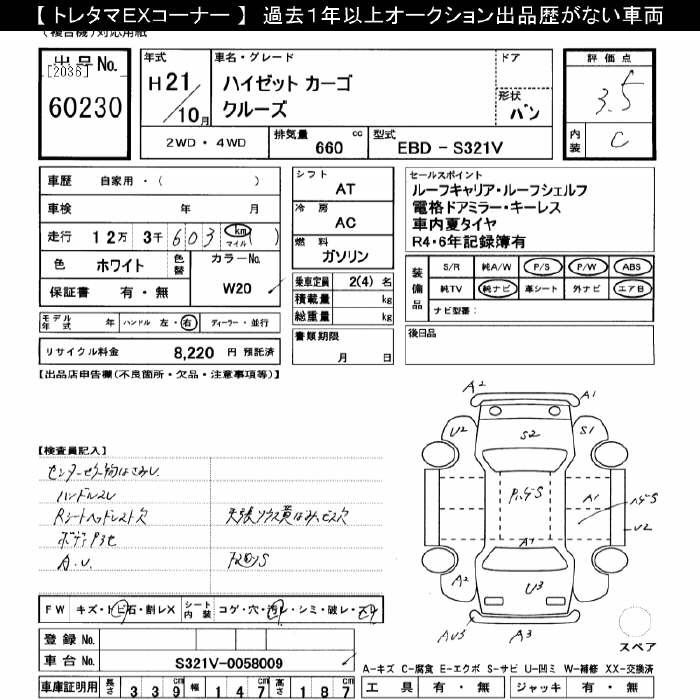 【 トレタマEXコーナー 】 過去１年以上オークション出品歴がない車両
(複合機)対応用紙
出品No.
[2036]
60230
年式
H21/10月
車名・グレード
ハイゼット カーゴ
クルーズ
ドア
形状
バン
2WD・4WD
排気量 660 cc
型式 EBD－S321V
評価点
3.5
内装 C
車歴 自家用・( )
車検 年 月
走行 12万 3千 603 km マイル ( )
色 ホワイト
色替
カラーNo.
W20
保証書 有・無
モデル年式 年 ハンドル 左・右 ディーラー・並行
リサイクル料金 8,220 円 預託済
シフト
AT
冷房
AC
燃料
ガソリン
乗車定員 2(4) 名
積載量 kg
総重量 kg
書類期限
月 日
セールスポイント
ルーフキャリア・ルーフシェルフ
電格ドアミラー・キーレス
車内夏タイヤ
R4・6年記録簿有
装備品
S/R 純A/W P/S P/W ABS
純TV 純ナビ 革シート 外ナビ エアB
ナビ型番：
後日品
【出品店申告欄(不良箇所・欠品・注意事項等)】
【検査員記入】
ハンドルスレ
Rシートヘッドレスト欠
A.U.
下回りS
FW キズ・トビ石・割レX
シート内装 コゲ・穴・汚レ・シミ・破レ・
登録No.
車台No. S321V-0058009
車庫証明用 長さ 339 幅 147 高さ 187
A2
A1
U2
S2
S1
A1
U2
A1
A2
U3
A3
スペア
A－キズ C－腐食 E－エクボ S－サビ U－凹ミ W－補修 XX－交換済
工具 有・無 ジャッキ 有・無